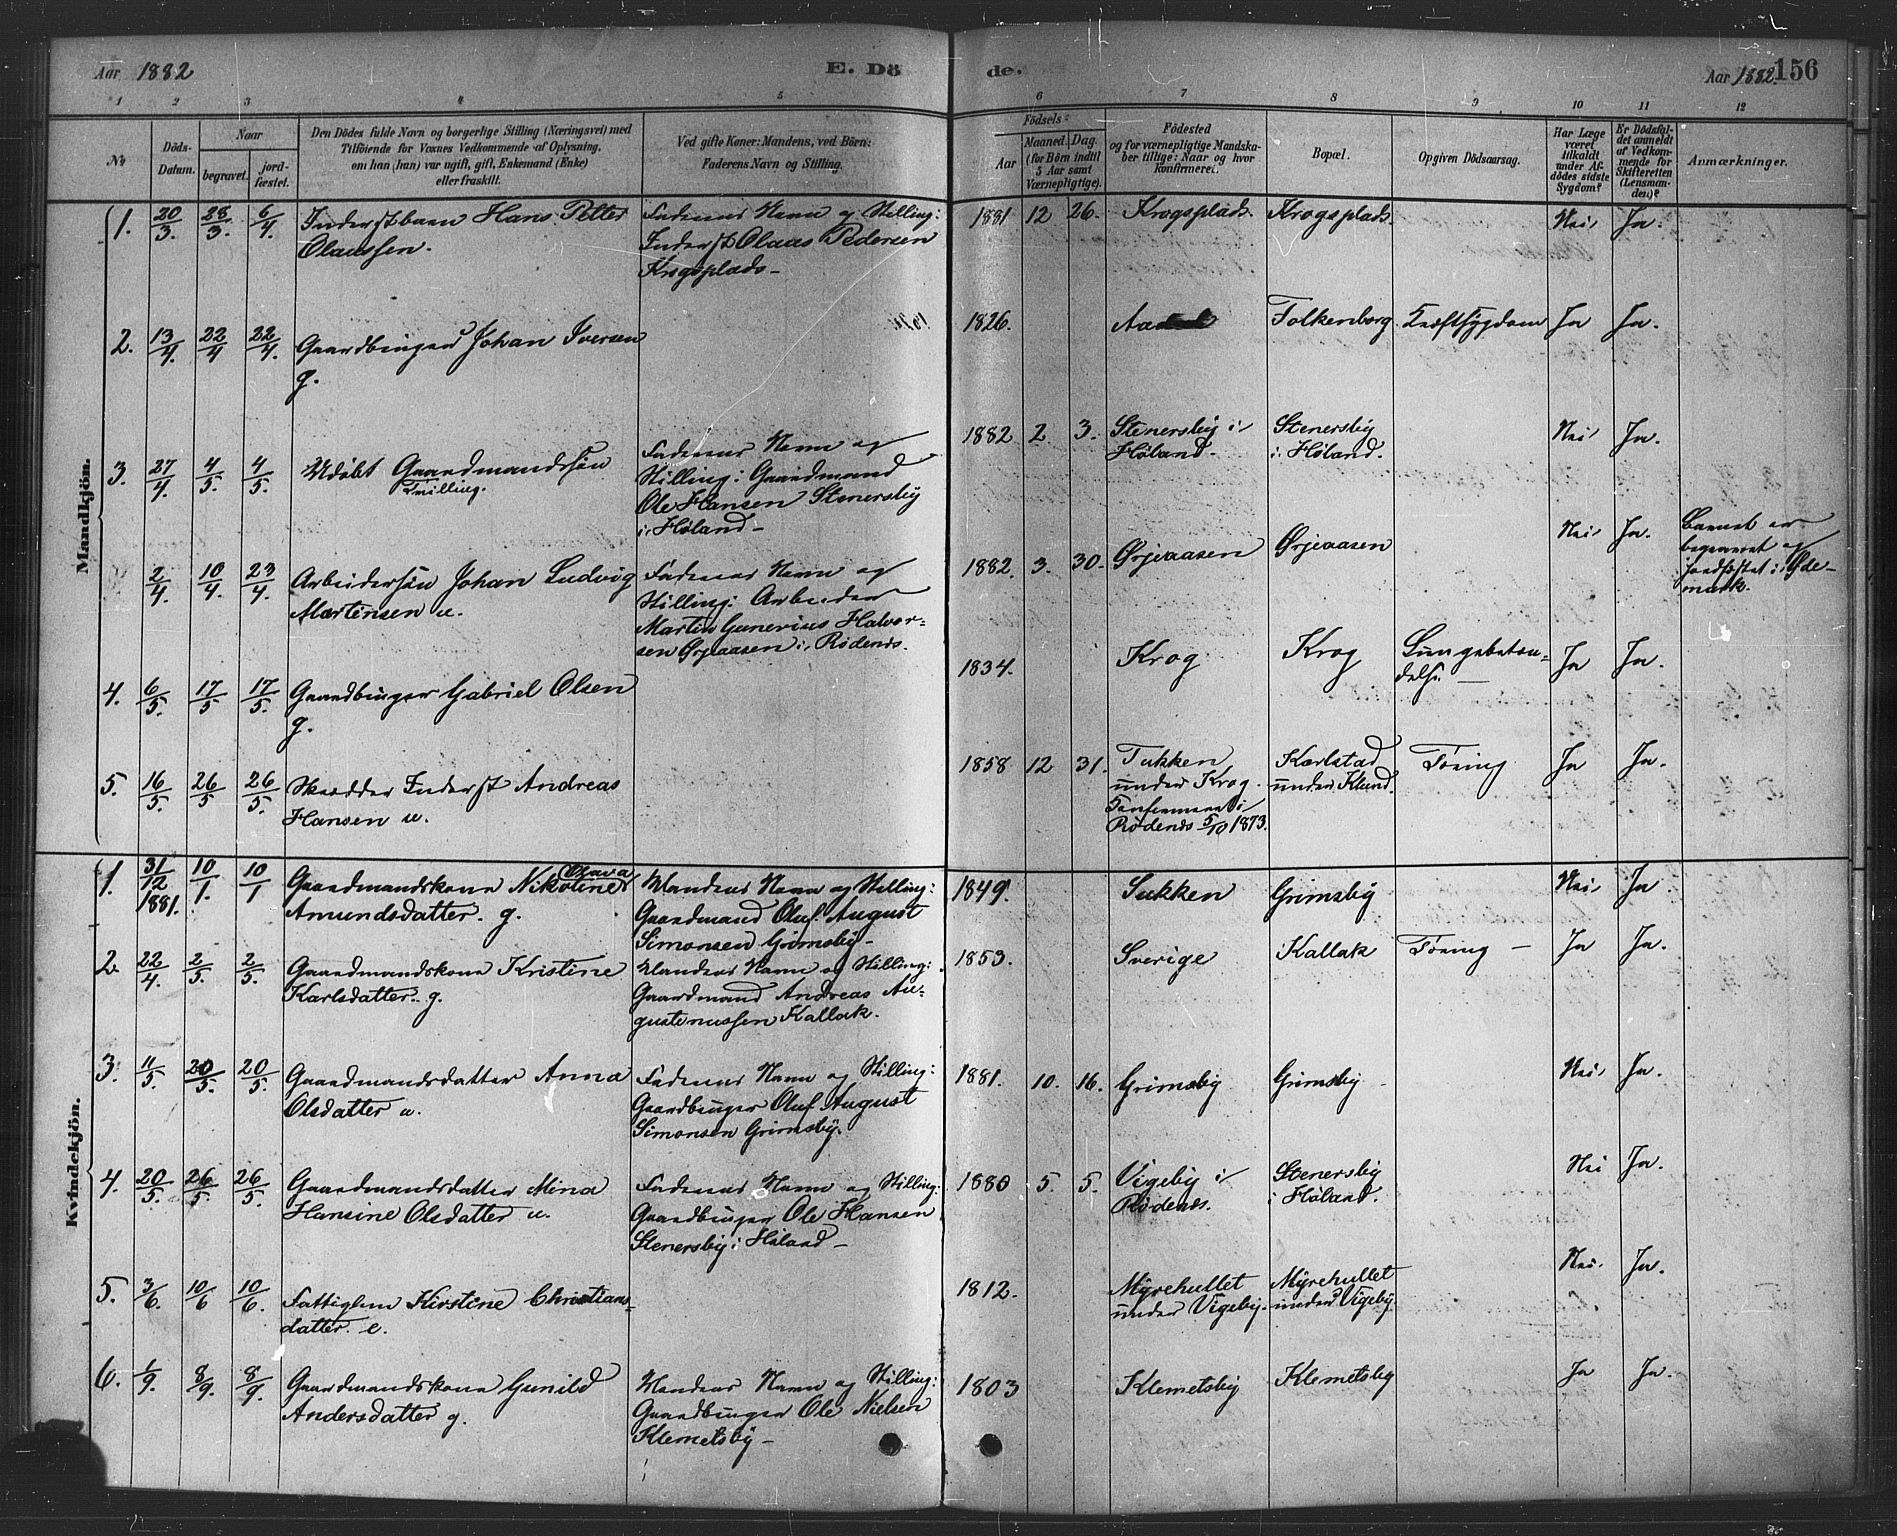 Aar 1882
E. Dö
de.
Aar 1882. 156
1 2 3 4 5 6 7 8 9 10 11 12
No
Döds-Datum.
Naar
begravet.
jord-fæstet.
Den Dödes fulde Navn og borgerlige Stilling (Næringsvei) med
Tilföiende for Voxnes Vedkommende af Oplysning,
om han (hun) var ugift, gift, Enkemand (Enke)
eller fraskilt.
Ved gifte Koner: Mandens, ved Börn:
Faderens Navn og Stilling.
Födsels-
Aar
Maaned. Dag.
(for Börn indtil
5 Aar samt
Værnepligtige).
Födested
og for værnepligtige Mandska-
ber tillige: Naar og hvor
konfirmeret.
Bopæl.
Opgiven Dödsaarsag.
Har Læge
været
tilkaldt
under Af-
dödes sidste
Sygdom?
Er Dödsfal-
det anmeldt
af Vedkom-
mende for
Skifteretten
(Lensman-
den)?
Anmærkninger.
Mandkjön.
1. 20/3. 28/3. 6/4. Inderstbarn Hans Petter
Olaussen.
Faderens Navn og Stilling:
Inderst Olaus Pedersen
Krogsplads-
1881 12 26. Krogsplads. Krogsplads. Nei, Ja.
2. 13/4. 22/4 22/4. Gaardbruger Johan Iversen
g.
1826. Folkenborg Kræftsygdom Ja Ja.
3. 27/4. 4/5. 4/5. Udøbt Gaardmandssøn
Trilling.
Faderens Navn og
Stilling: Gaardmand
Ole Hansen Stenersby
i Høland-
1882 2 3. Stenersby i
Høland.
Stenersby
i Høland.
Nei, Ja.
2/4. 10/4. 23/4. Arbeidersøn Johan Ludvig
Martensen u.
Faderens Navn og
Stilling: Arbeider
Martin Gunerius Halvor-
sen Ørjeaasen i Rødenæs.
1882. 3. 30. Ørjeaasen Ørjeaasen Nei, Ja.
Barnet er
begravet og
jordfæstet i Øde-
mark.
4. 6/5. 17/5 17/5. Gaardbruger Gabriel Olsen
g.
1834. Krog Krog Lungebetæn-
delse.
Ja Ja.
5. 16/5. 26/5 26/5. Skrædder Inderst Andreas
Hansen u.
1858 12 31. Tukken
under Krog.
Konfirmeret i
Rødenæs 5/10 1873.
Karlstad
under Klund.
Tæring Ja Ja.
Kvindekjön.
1. 31/12 1881. 10/1. 10/1 Gaardmandskone Nikoline Olava
Amundsdatter. g.
Mandens Navn og Stilling:
Gaardmand Oluf August
Simonsen Grimsby-
1849. Sukken Grimsby Nei, Ja.
2. 22/4. 2/5. 2/5. Gaardmandskone Kristine
Karlsdatter. g.
Mandens Navn og Stilling:
Gaardmand Andreas Au-
gustenussen Kallak.
1853. Sverige Kallak Tæring - Ja Ja.
3. 11/5. 20/5. 20/5. Gaardmandsdatter Anna
Olsdatter u.
Faderens Navn og Stilling:
Gaardbruger Oluf August
Simonsen Grimsby.
1881. 10. 16. Grimsby Grimsby Nei, Ja.
4. 20/5. 26/5. 26/5. Gaardmandsdatter Mina
Hansine Olsdatter u.
Faderens Navn og Stilling:
Gaardbruger Ole Hansen
Stenersby i Høland-
1880 5. 5. Vigeby i
Rødenæs.
Stenersby
i Høland.
Nei Ja.
5. 3/6. 10/6 10/6. Fattiglem Kirstine Christians-
datter. e.
1812. Myrehullet
under Vigeby.
Myrehullet
under Vigeby.
Nei. Ja.
6. 1/9. 8/9. 8/9. Gaardmandskone Gunild
Andersdatter g.
Mandens Navn og Stilling:
Gaardbruger Ole Nielsen
Klemetsby-
1803 Klemetsby Klemetsby Ja Ja.